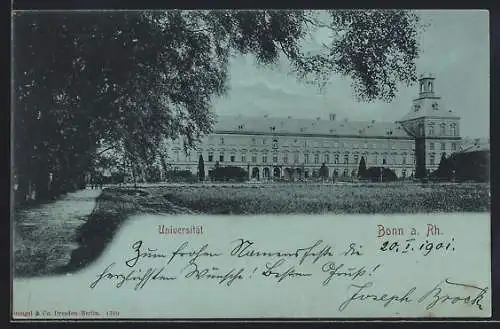 Universität
Bonn a. Rh.
Zum frohen Namensfeste die
20. I. 1901.
herzlichsten Wünsche! Besten Gruß!
Joseph Brock
Stengel & Co. Dresden-Berlin.